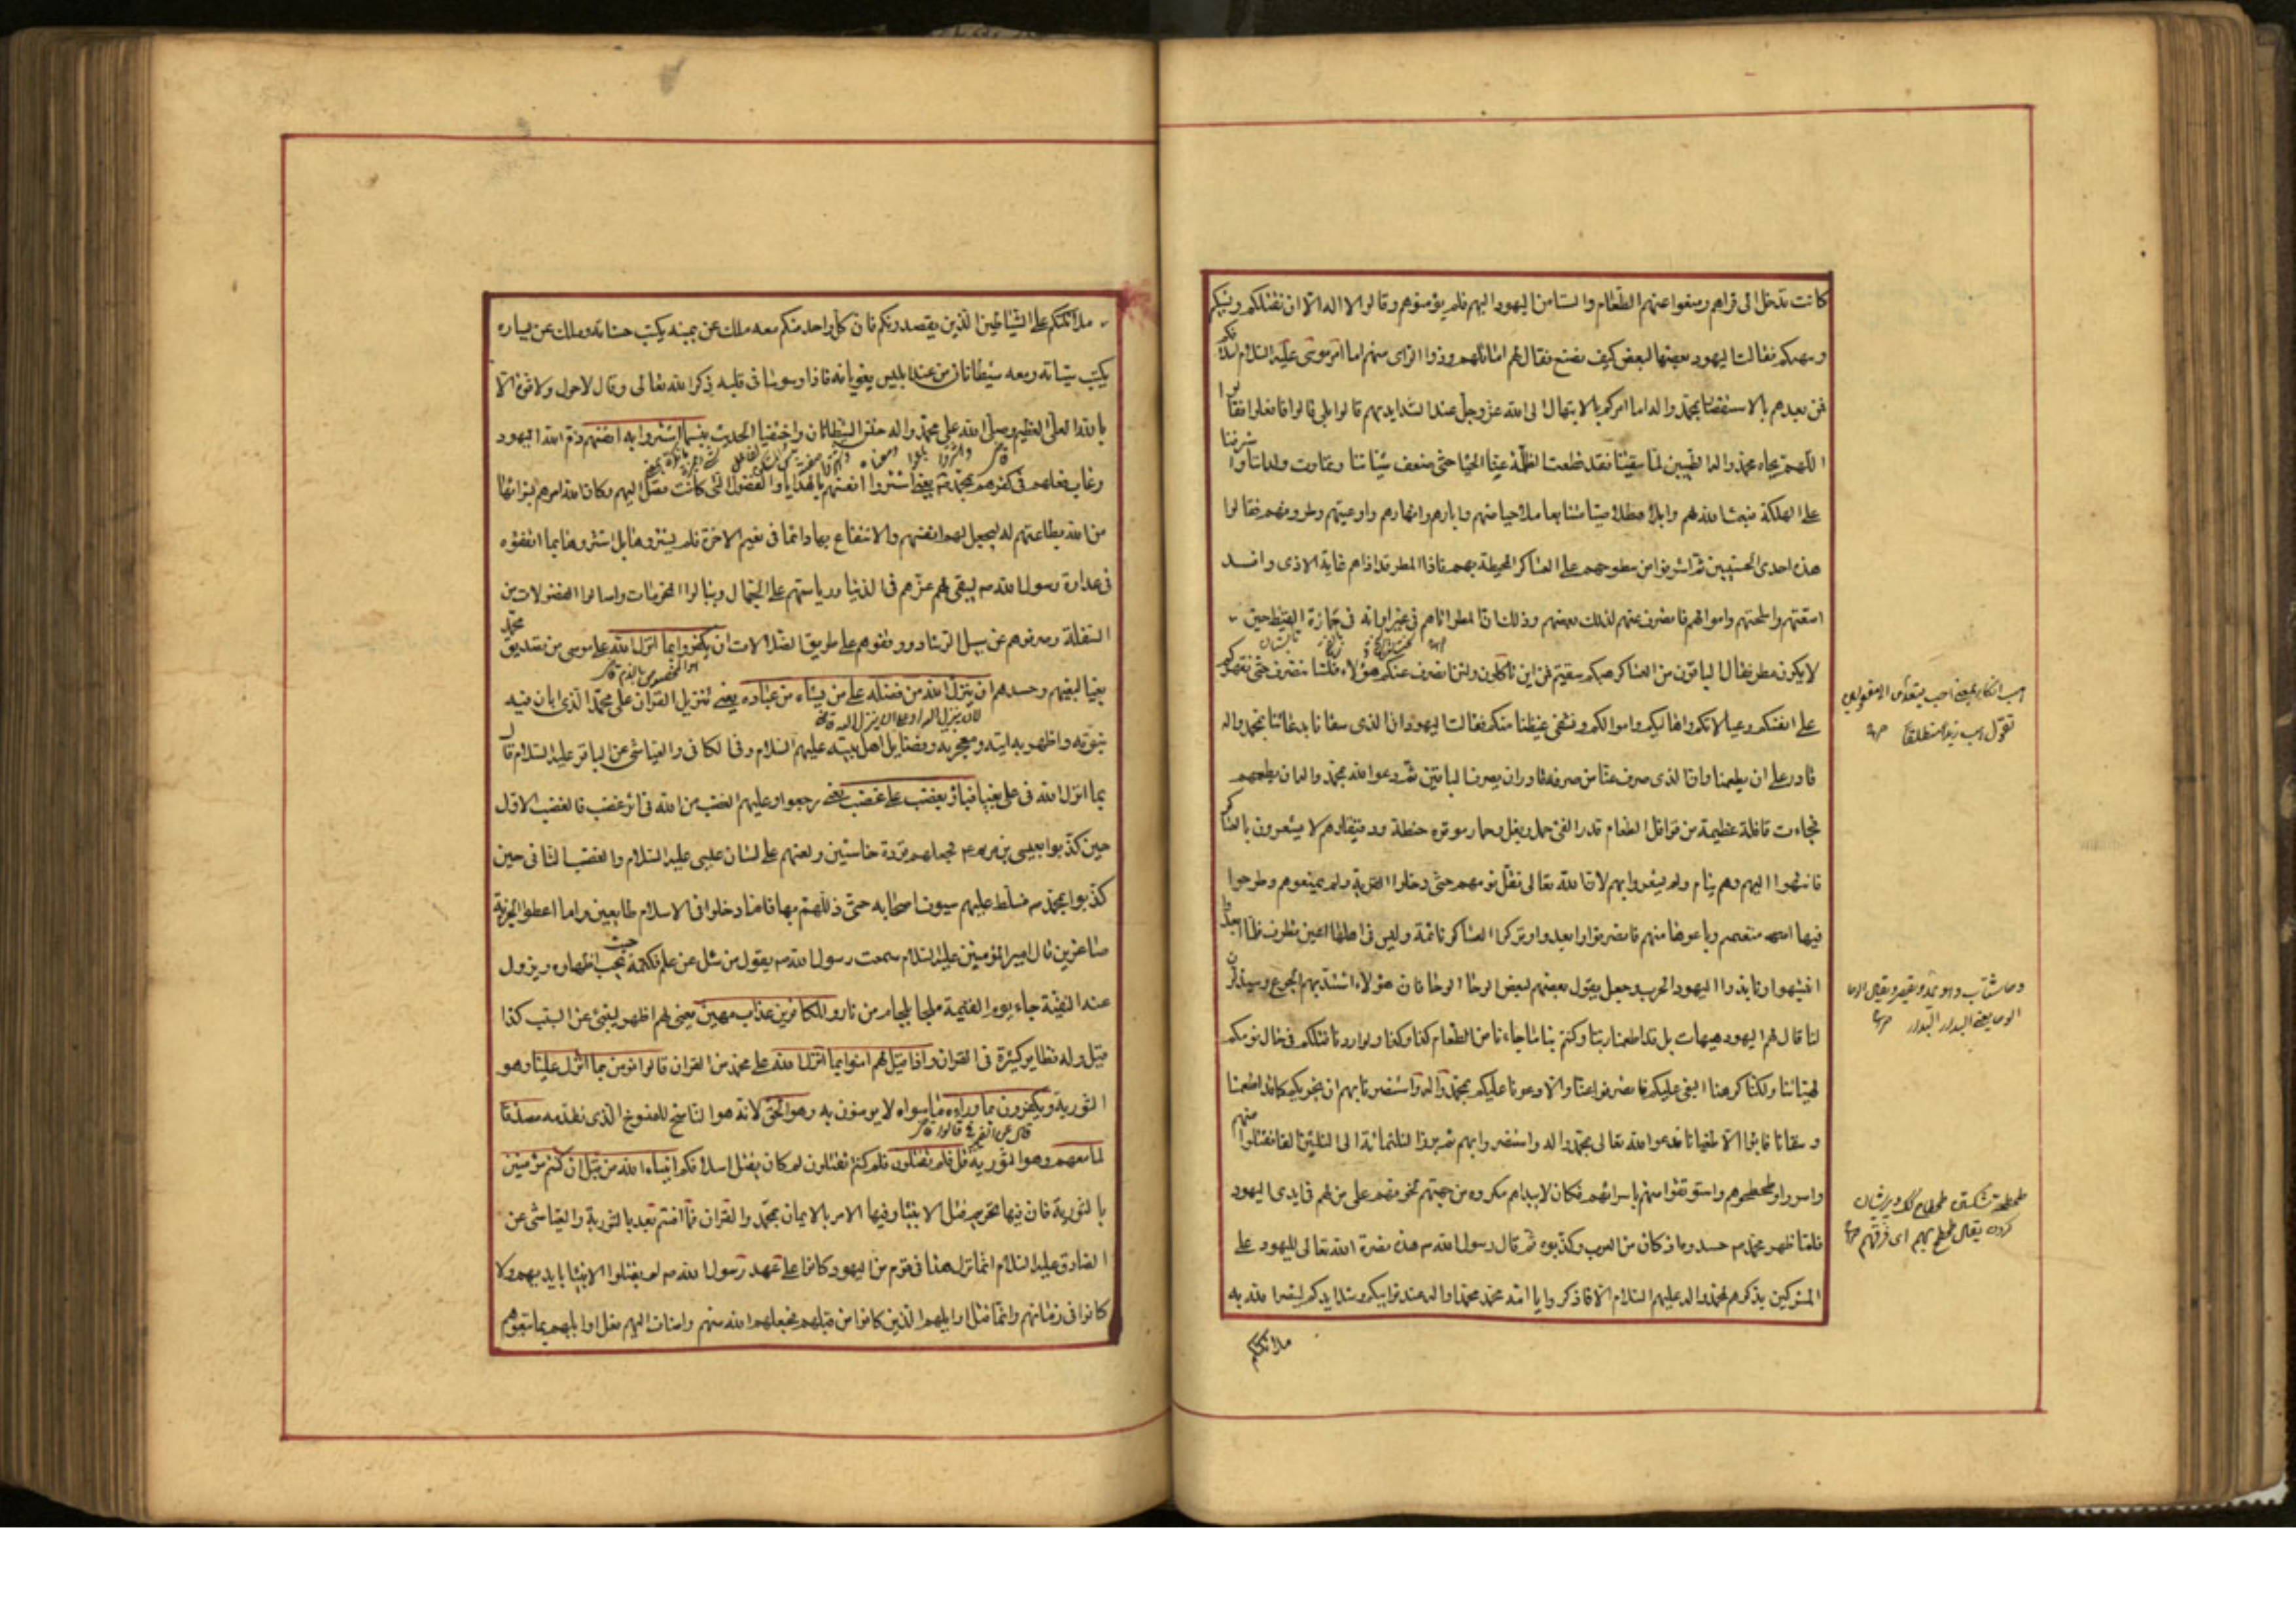 كانت تدخل الى قراهم ومنعوا عنهم الطعام والتامن اليهود اليهم فلم يؤمنوهم وقالوا لا الا ان نقتلكم ونسبيكم
وننهبكم فقالت اليهود بعضها لبعض كيف نصنع فقال لهم اماثلهم وذووا الراى منهم اما امر موسى عليه السلام اسلافكم
فمن بعدهم بالاستنصار بمحمد واله اما امركم بالابتهال الى الله عز وجل عند الشدايد بهم قالوا بلى قالوا فافعلوا فقالوا
اللهم بجاه محمد واله الطيبين لما سقيتنا فقد قطعت الظلمة عنا المياه حتى ضعف شباننا وتماوت ولداننا واشرفنا
على الهلكة فبعث الله لهم وابلا هطلا حياضهم وابارهم وانهارهم واوعيتهم وظروفهم فقالوا
هذه احدى الحسنيين ثم اشرفوا من سطوحهم على العساكر المحيطة بهم فاذا المطر قد اذاهم غاية الاذى وافسد
امتعتهم واسلحتهم واموالهم فانصرف عنهم لذلك بعضهم وذلك ان المطر اتاهم فى غير اوانه فى حمارة القيظ حين
لا يكون مطر فقال الباقون من العساكر هبكم سقيتم فمن اين تاكلون ولئن انصرف عنكم هؤلاء فلسنا ننصرف حتى نقهركم
على انفسكم وعيالاتكم واهاليكم واموالكم ونشفى غيظنا منكم فقالت اليهود ان الذى سقانا بدعائنا بمحمد واله
قادر على ان يطعمنا وان الذى صرف عنا من صرفه قادر ان يصرف الباقين ثم دعوا الله بمحمد واله ان يطعمهم
فجاءت قافلة عظيمة من قوافل الطعام قدر الفى جمل وبغل وحمار موقرة حنطة ودقيقا وهم لا يشعرون بالعساكر
فانتهوا اليهم وهم نيام ولم يشعروا بهم لان الله تعالى ثقل نومهم حتى دخلوا القرية ولم يمنعوهم وطرحوا
فيها امتعتهم وباعوها منهم فانصرفوا وابعدوا وتركوا العساكر نائمة وليس فى اهلها عين تطرف فلما ابعدوا
انتبهوا ونابذوا اليهود الحرب وجعل يقول بعضهم لبعض الوحا الوحا فان هؤلاء اشتد بهم الجوع وسيذلون
لنا قال لهم اليهود هيهات بل قد اطعمنا ربنا وكنتم نياما جاءنا من الطعام كذا وكذا ولو اردنا قتلكم فى حال نومكم
لهيئ لنا ولكنا كرهنا البغى عليكم فانصرفوا عنا والا دعونا عليكم بمحمد واله واستنصرنا بهم ان يخزيكم كما قد اطعمنا
وسقانا فابوا الا طغيانا فدعوا الله تعالى بمحمد واله واستنصروا بهم ثم برز الثلثمائة الى الثلثين الفا فقتلوا منهم
واسروا وطحطحوهم واستوثقوا منهم باسرائهم فكان لا ينداهم مكروه من جهتهم لخوفهم على من لهم فى ايدى اليهود
فلما ظهر محمد ص حسدوه اذ كان من العرب وكذبوه ثم قال رسول الله ص هذه نصرة الله تعالى لليهود على
المشركين بذكرهم لمحمد واله عليهم السلام الا فاذكروا يا امة محمد محمدا واله عند نوايبكم وشدايدكم لينصر الله به
ملائكتكم
تقول هب زيدا منطلقا
الوحا يعنى البدار البدار
طحطحة شكستن
كردن يقال طحطح بهم اى فرقهم
ملائكتكم على الشياطين الذين يقصدونكم فان كل واحد منكم معه ملك عن يمينه يكتب حسناته وملك عن يساره
يكتب سيئاته ومعه شيطانان من عند ابليس يغويانه فاذا وسوسا فى قلبه ذكر الله تعالى وقال لا حول ولا قوة الا
بالله العلى العظيم وصلى الله على محمد واله خنس الشيطانان واختفيا الحديث بئسما اشتروا به انفسهم ذم الله اليهود
وعاب فعلهم فى كفرهم بمحمد ص يعنى اشتروا انفسهم بالهدايا والفضول التى كانت تصل اليهم وكان الله امرهم بشرائها
من الله بطاعتهم له ليجعل لهم انفسهم والانتفاع بها دائما فى نعيم الاخرة فلم يشتروها بل اشتروها بما انفقوه
فى عداوة رسول الله ص ليبقى لهم عزهم فى الدنيا ورياستهم على الجهال وينالوا المحرمات واصابوا الفضولات من
السفلة وصرفوهم عن سبيل الرشاد ووقفوهم على طريق الضلالات ان يكفروا بما انزل الله على موسى من تصديق محمد
بغيا لبغيهم وحسدهم ان ينزل الله من فضله على من يشاء من عباده يعنى تنزيل القران على محمد الذى ابان فيه
نبوته واظهر به ايته ومعجزته وفضايل اهل بيته عليهم السلام وفى الكافى والعياشى عن الباقر عليه السلام قال
بما انزل الله فى على بغيا فباؤ بغضب على غضب يعنى رجعوا وعليهم الغضب من الله فى اثر غضب فالغضب الاول
حين كذبوا بعيسى بن مريم ع فجعلهم قردة خاسئين ولعنهم على لسان عيسى عليه السلام والغضب الثانى حين
كذبوا بمحمد ص فسلط عليهم سيوف اصحابه حتى ذللهم بها فاما دخلوا فى الاسلام طايعين واما اعطوا الجزية
صاغرين قال امير المؤمنين عليه السلام سمعت رسول الله ص يقول من سئل عن علم فكتمه حيث يجب اظهاره ويزول
عند التقية جاء يوم القيمة ملجما بلجام من نار وللكافرين عذاب مهين يعنى لهم اظهر لينبئ عن السبب كذا
قيل وله نظاير كثيرة فى القران واذا قيل لهم امنوا بما انزل الله على محمد من القران قالوا نؤمن بما انزل علينا وهو
التورية ويكفرون بما وراءه ما سواه لا يؤمنون به وهو الحق لانه هو الناسخ للمنسوخ الذى تقدمه مصدقا
لما معهم وهو التورية قل فلم تقتلون فلم كنتم تقتلون لم كان يقتل اسلافكم انبياء الله من قبل ان كنتم مؤمنين
بالتورية فان فيها تحريم قتل الانبياء وفيها الامر بالايمان بمحمد والقران فما امنتم بعد بالتورية والعياشى عن
الصادق عليه السلام انما نزل هذا فى قوم من اليهود كانوا على عهد رسول الله ص لم يقتلوا الانبياء بايديهم ولا
كانوا فى زمانهم وانما قتل اوايلهم الذين كانوا من قبلهم فجعلهم الله منهم واضاف اليهم فعل اوايلهم بما تبعوهم